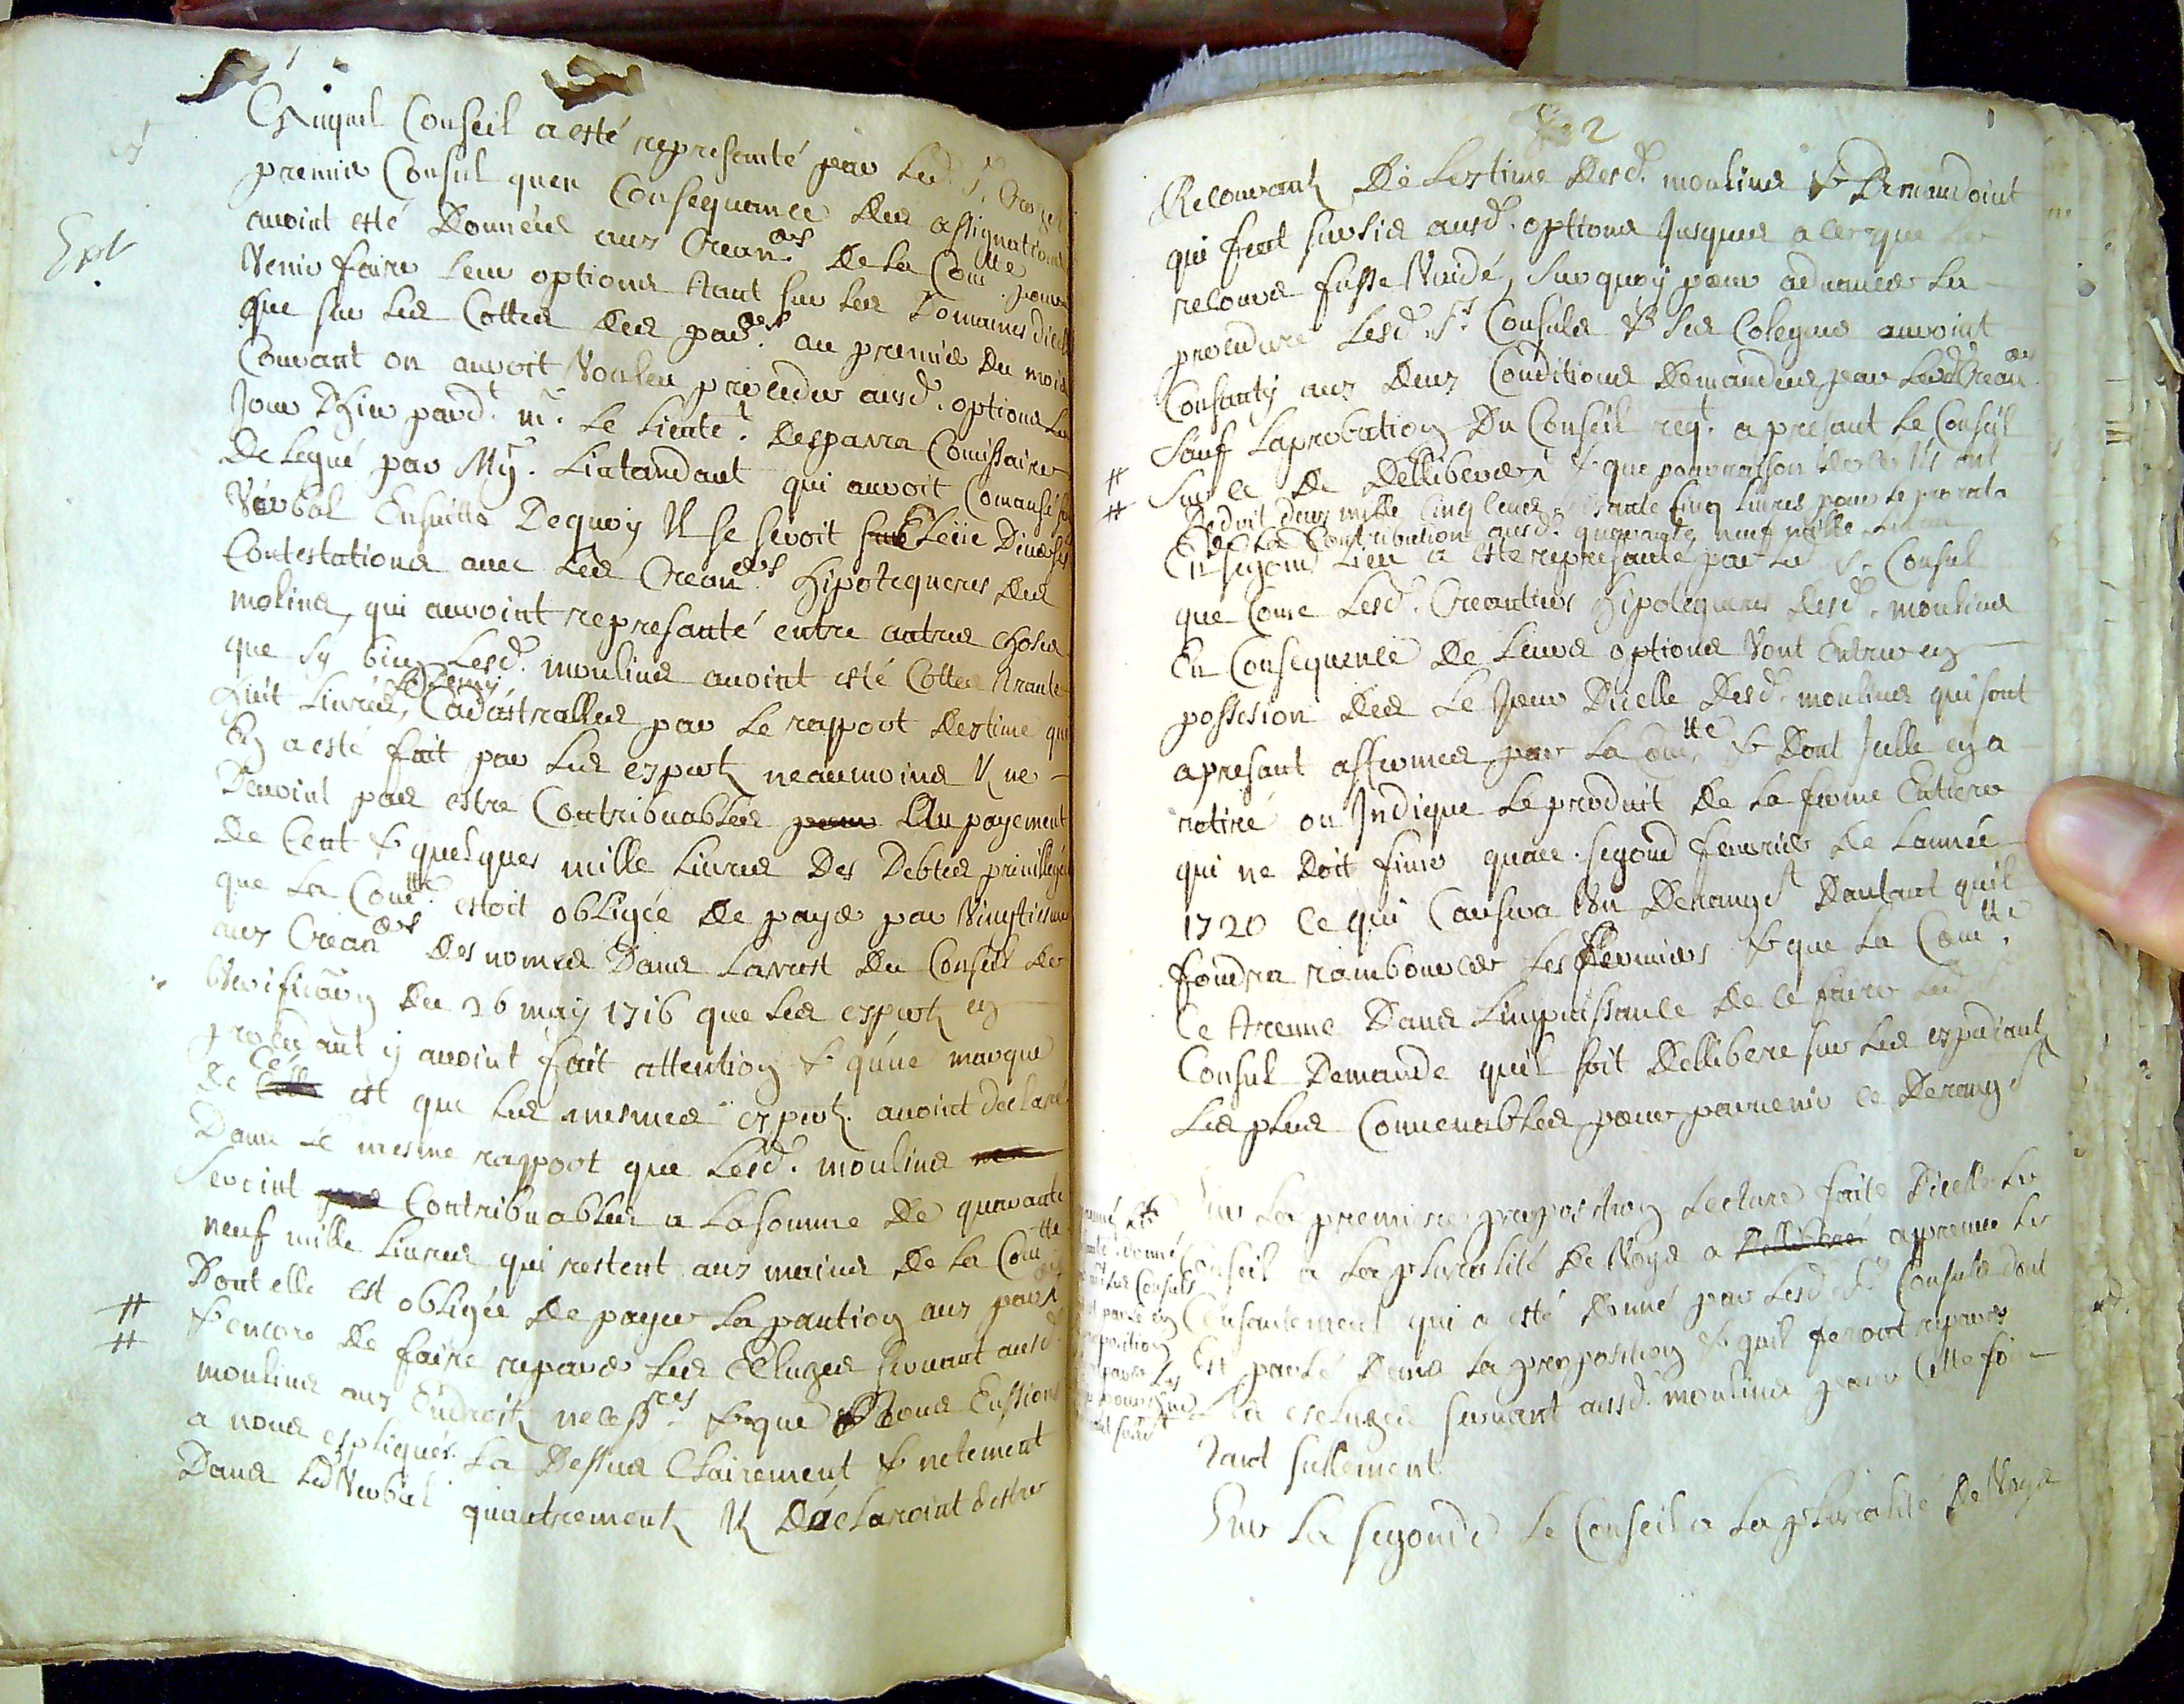 Auquel Conseil a esté représanté par led. Sr.
premier Consul quen Consequance des assignations
avoint esté Données aux Crean.ers De la Com.tté pour
Venir faire leur options tant sur les Domaines
que sur les Cottes des par.ers au premier du mois
Courant on auroit Voulu proceder ausd. options Le
Jour D'hier pard.t mr. Le Lieute.t Desparra Comissaire
Delegué par Mgr. Lintandant qui auroit Comansé
Verbal Ensuitte Dequoy Il se seroit Eleüe Diverses
Contestations avec Les Crean.ers Hipotequeres des
molins, qui auroint représanté entre autres choses
que sy bien Lesd. moulins avoint esté Cottes trante
huit Livres, & demy Cadastralles par Le rapport destime qui
En a esté fait par Les expertz neaumoins Il ne
Devoint pas estre Contribuables Au payement
De Cent & quelques mille Livres Des Debtes privillegiés
que La Com.té estoit obligée De payer par Vingtiesme
aux Crean.ers Desnomés Dans Larrest Du Conseil de
Verification Du 26 may 1716 que Les expertz en
procedant y avoint fait attention & qu'une marque
de Cé est que Les mesmes expertz avoint declaré
Dans Le mesme rapport que Lesd. moulins
Seroint Contribuables a La somme De quarante
neuf mille Livres qui restent aux mains De La Com.tté
Dont elle est obligée De payer La pantion aux par.ers
# & encore De faire reparer Les Ecluzes servant ausd.
# moulins aux Endroitz necess.res & que Nous Eussions
a nous expliquer La Dessus Clairement & netement
Dans Led Verbal quautrement Il Declaroint destre
2
Relouvantz De Lestime Desd. moulins & Demandoint
qui feut sursis ausd. options Jusques a ce que Le
relours fusse Vuidé, Surquoy pour advancer La
procedure Lesd. Srs Consuls & Ses Colegues auroint
Consanty aux Deux Conditions Demandées par Lesd. Crean.ers
Sauf Laprobation Du Conseil req.t a présant Le Conseil
# Sur ce De Delliberer & que pour raison de ce Ils ont
# Deduit Deux mille Cinq Cens soixante Cinq Livres pour Le prorata
De La Contribution ausd. quarante neuf mille Livres
En segond Lieu a esté représanté par Led Sr. Consul
que Come Lesd. Creantiers Hipotequeres Desd. moulins
En Consequence De Leurs options Vont Entrer en
possesion Des Le Jour Dicelle Desd. moulins qui sont
apresant affermes par La Com.tté & Dont Jcelle en a
retiré ou Indique Le produit De La ferme Entiere
qui ne Doit finir quau segond fevrier De Lannée
1720 Ce qui Causera Un Derangt Dautant quil
foudra rambourcer Les fermiers & que La Com.tté
Ce treuve Dans Limpuissance De Le faire Led
Consul Demande quil soit Dellibere sur Les expediantz
Les plus Convenables pour parvenir Ce Derangt
Sur La premiere proposition Lecture faite Dicelle Le
Conseil a La pluralité De Voyes a Delliberé aprouvé Le
Consantement qui a esté Donné par Lesd. Srs Consuls dont
Est parlé Dans La proposition & quil feront reparer
La ecluzes servant ausd. moulins pour Cette fois
Tant sullement
Sur La segonde Le Conseil a La pluralité De Voyes